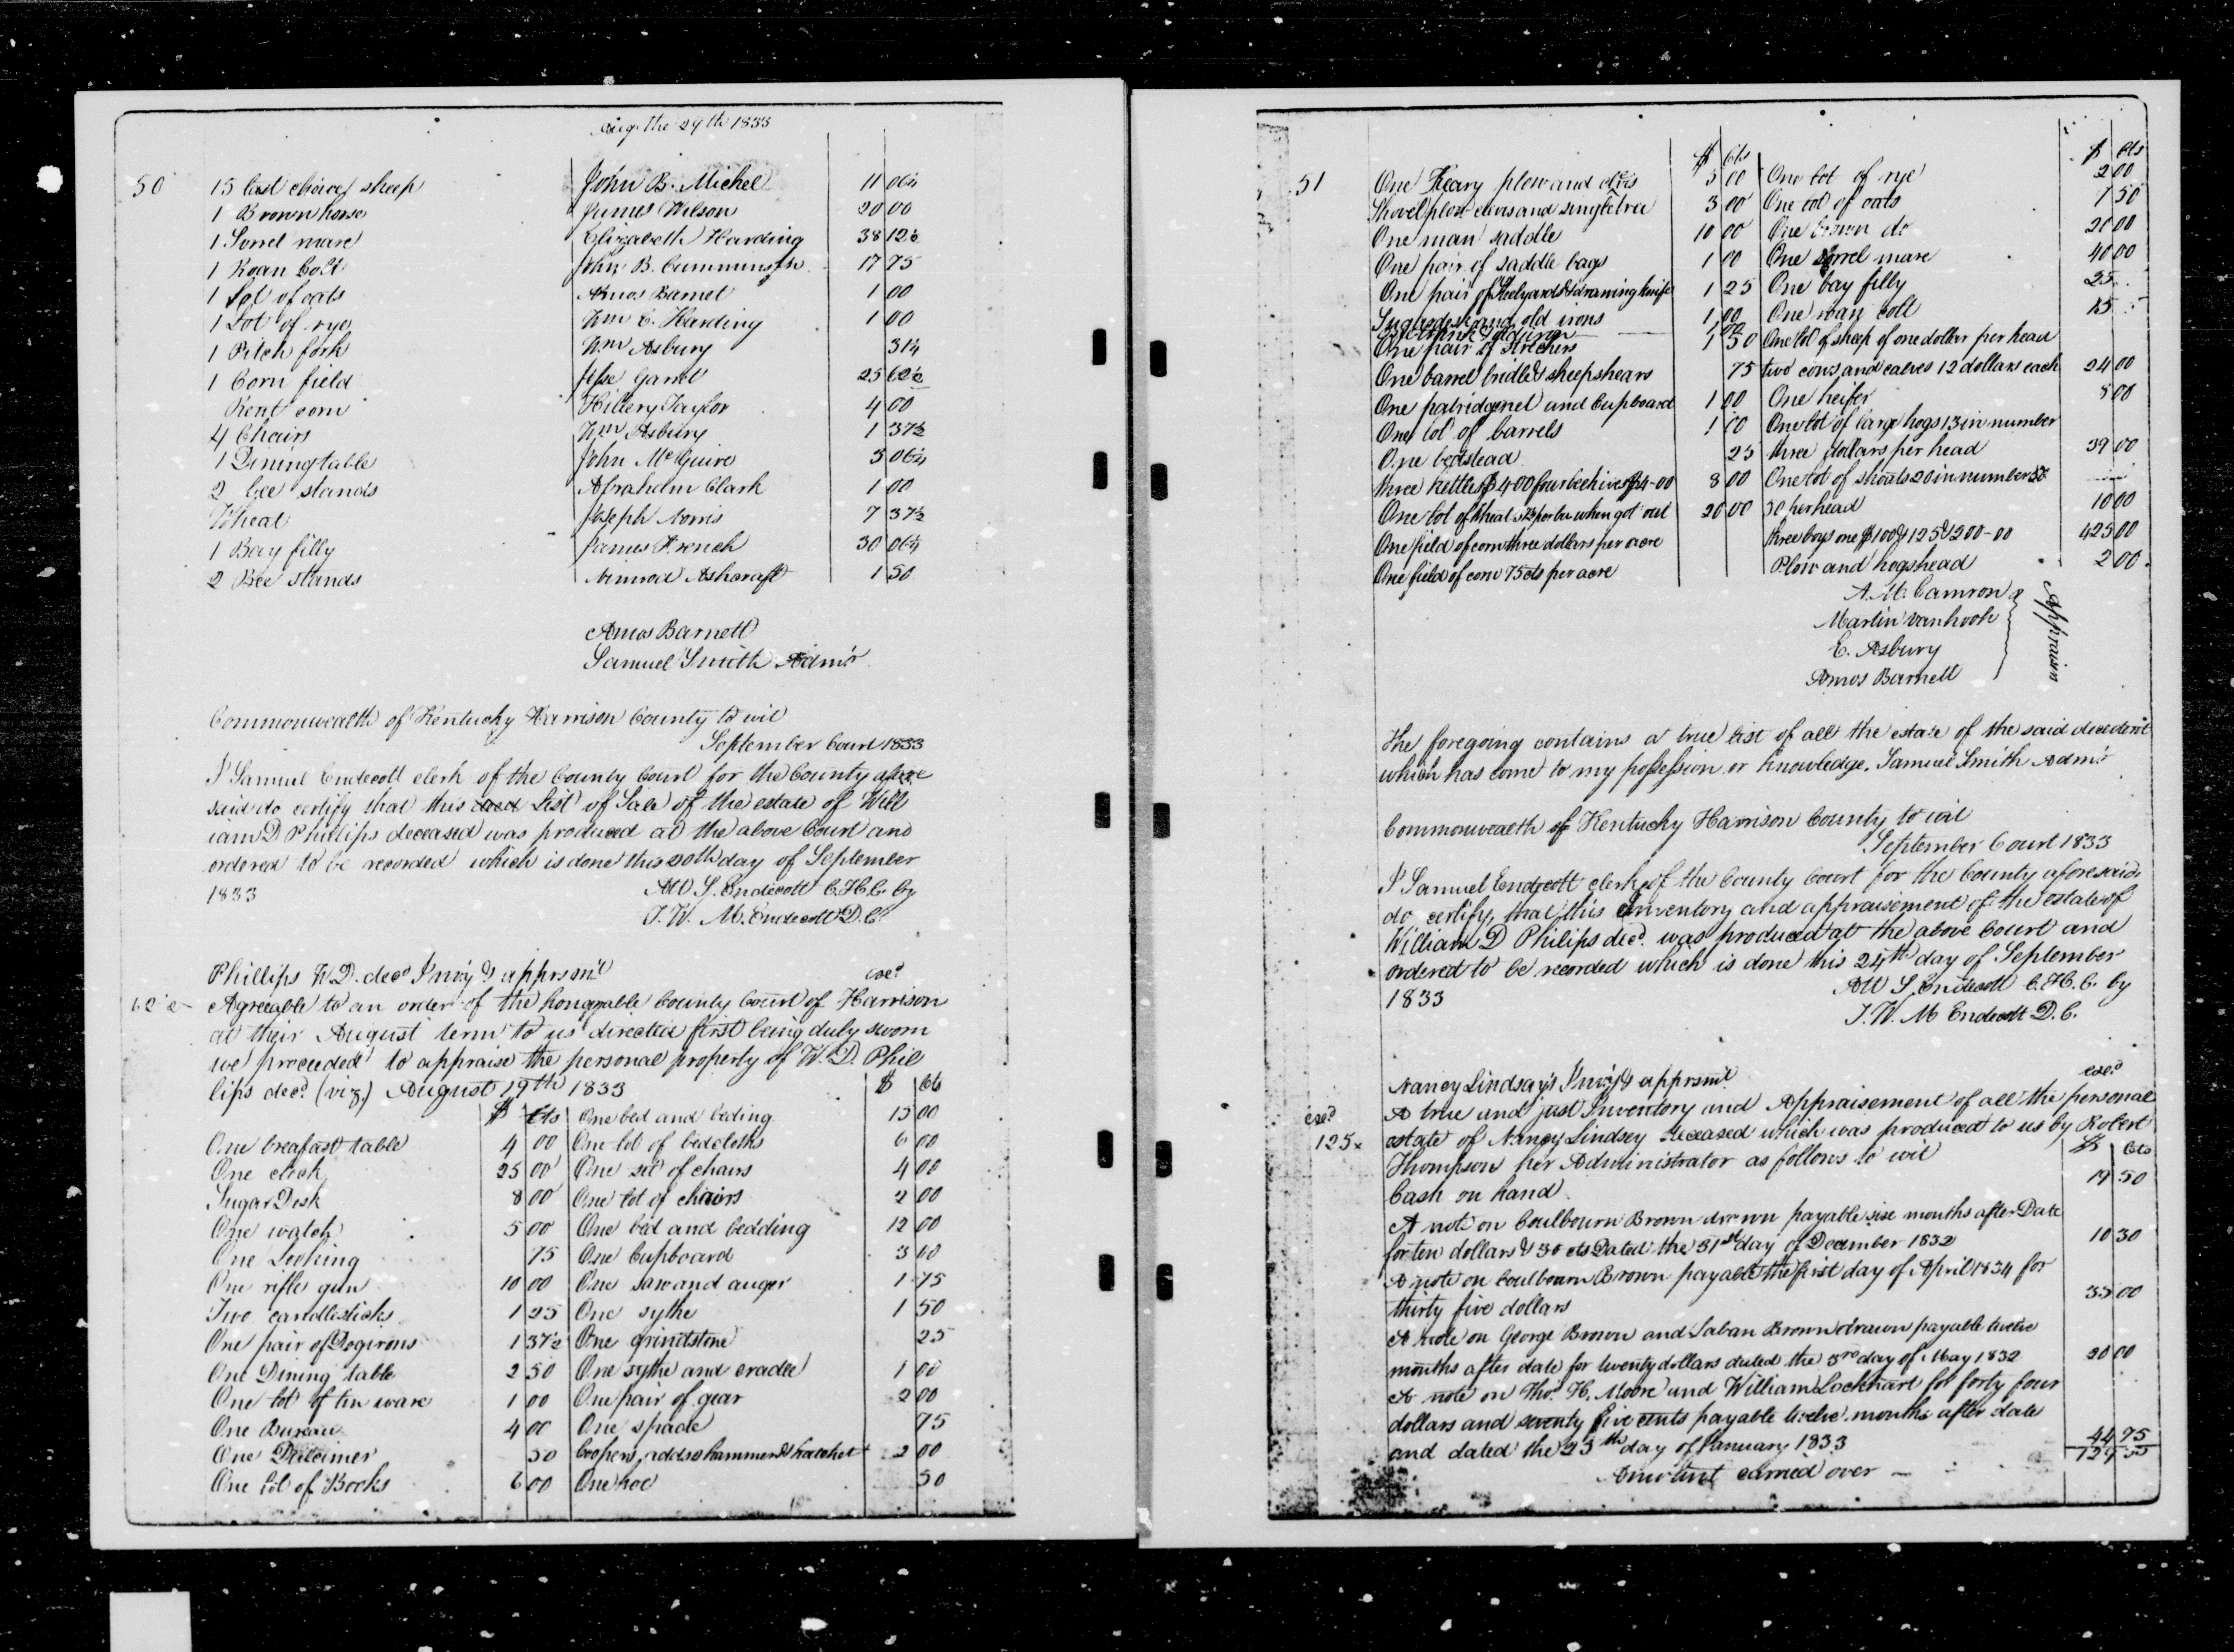 Aug. the 29th 1833
50 15 last choice sheep John B. Michel 11 06¼
1 Brown horse James Wilson 20 00
1 Sorrel mare Elizabeth Harding 38 12½
1 Roan Colt John B. Cummins 17 75
1 Lot of oats Amos Barnet 1 00
1 Lot of rye Wm C. Harding 1 00
1 Pitch fork Wm Asbury 31¼
1 Corn field Jesse Garret 25 62½
Rent corn Hillery Taylor 4 00
4 Chairs Wm Asbury 1 37½
1 Dining table John McGuire 5 06¼
2 bee stands Abraham Clark 1 00
Wheat Joseph Norris 7 37½
1 Bay filly James French 30 06¼
2 Bee stands Nimrod Ashcraft 1 50
Amos Barnett
Samuel Smith Adm's
Commonwealth of Kentucky Harrison County to wit
September Court 1833
I Samuel Endecott clerk of the County Court for the County afore
said do certify that this List of Sale of the estate of Will
iam D Phillips deceased was produced at the above Court and
ordered to be recorded which is done this 20th day of September
1833 Att S. Endecott C.H.C. by
J. W. M. Endecott D.C.
Phillips W.D. decd Inv'y & apprsm't exd
62½ Agreeable to an order of the honorable County Court of Harrison
at their August term to us directed first being duly sworn
we proceeded to appraise the personal property of W. D. Phil
lips decd (viz) August 19th 1833 $ cts
$ Cts One bed and beding 15 00
One breafast table 4 00 One lot of bedcloths 6 00
One clock 25 00 One set of chairs 4 00
Sugar Desk 8 00 One lot of chairs 2 00
One watch 5 00 One bed and bedding 12 00
One Looking 75 One Cupboard 3 00
One rifle gun 10 00 One saw and auger 1 75
Two candlesticks 1 25 One sythe 1 50
One pair of Dogirons 1 37½ One grindstone 25
One Dining table 2 50 One sythe and cradle 1 00
One lot of tin ware 1 00 One pair of gear 2 00
One Bureau 4 00 One spade 75
One 50 Coopers adds hammer & hatchet 2 00
One lot of Books 6 00 One hoe 50
51 $ Cts $ Cts
One Keary plow and clvis 5 00 One lot of rye 2 00
Shovel plow clevis and singletree 3 00 One lot of oats 7 50
One man saddle 10 00 One brown do 20 00
One pair of saddle bags 1 00 One sorrel mare 40 00
One pair of Steelyards & drawing knife 1 25 One bay filly 25
Sugardesk and old irons 1 00 One roan colt 15
One pair of strechers 1 50 One lot of sheep of one dollar per head
One barrel bridle & sheepshears 75 two cows and calves 12 dollars each 24 00
One patridgenet and Cupboard 1 00 One heifer 8 00
One lot of barrels 1 00 One lot of large hogs 13 in number
One bedstead 25 three dollars per head 39 00
three kettles $4 00 four beehives $4-00 8 00 One lot of shoats 20 in number
One lot of wheat per bu when got out 20 00 50 per head 10 00
One field of corn three dollars per acre three boys one $100 & 125 & 200-00 425 00
One field of corn 75 cts per acre Plow and hogshead 2 00
A. M. Camron
Martin vanhook
E. Asbury
Amos Barnett
Appraisers
The foregoing contains a true list of all the estate of the said decedent
which has come to my possession or knowledge. Samuel Smith Adm's
Commonwealth of Kentucky Harrison County to wit
September Court 1833
I Samuel Endecott clerk of the County Court for the County aforesaid
do certify that this Inventory and appraisement of the estate of
William D Philips decd. was produced at the above Court and
ordered to be recorded which is done this 24th day of September
1833 Att S. Endecott C.H.C. by
J. W. M Endecott D.C.
Nancy Lindsay's Inv'y & apprsm't exd
exd A true and just Inventory and Appraisement of all the personal
125 estate of Nancy Lindsey deceased which was produced to us by Robert
Thompson her Administrator as follows to wit $ Cts
Cash on hand 19 50
A note on Coulbourn Brown drawn payable six months after Date
for ten dollars & 30 cts Dated the 31st day of December 1832 10 30
A note on Coulbourn Brown payable the first day of April 1834 for
thirty five dollars 35 00
A note on George Brown and Laban Brown drawn payable twelve
months after date for twenty dollars dated the 3rd day of May 1832 20 00
A note on Thos. H. Moore and William Lockhart for forty four
dollars and seventy five cents payable twelve months after date
and dated the 23th day of January 1833 44 75
Amount carried over 129 55